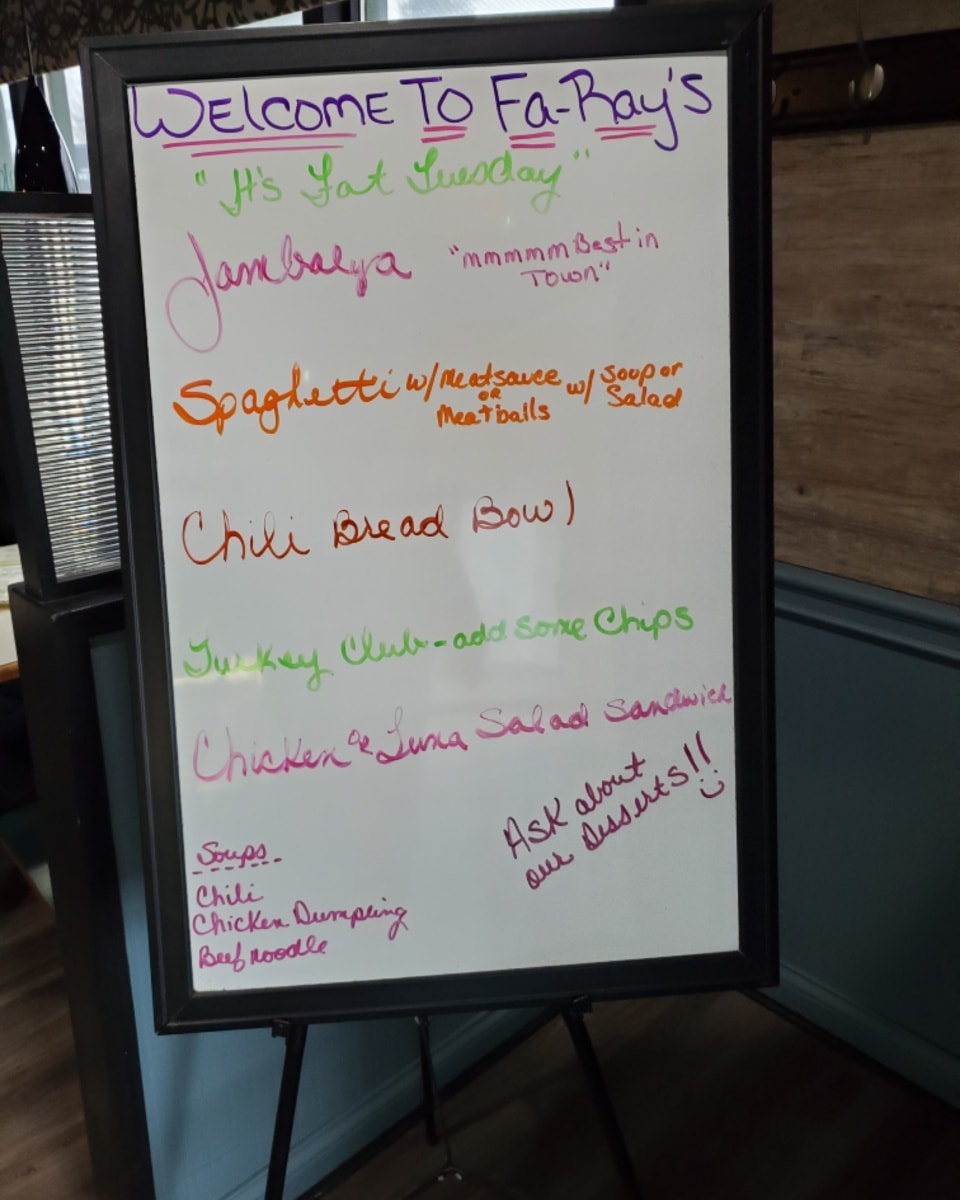 WELCOME TO Fa-Ray's
"It's Fat Tuesday"
Jambalya "mmmmm Best in
Town"
Spaghetti w/ Meatsauce w/ Soup or
or Salad
Meatballs
Chili Bread Bowl
Turkey Club - add some Chips
Chicken or Tuna Salad Sandwich
Ask about
our Desserts!!
Soups
Chili
Chicken Dumpling
Beef noodle